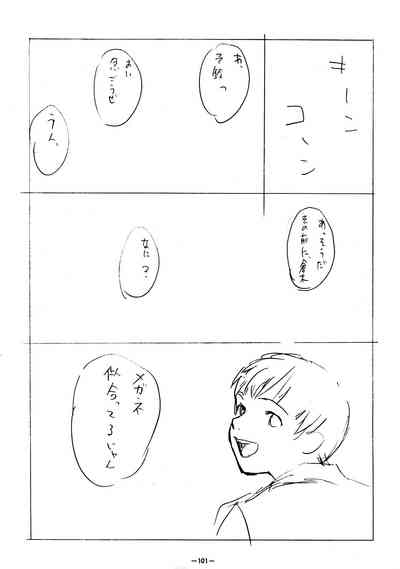 キーン
コーン
あ、
予鈴っ
おい
急ごうぜ
うん、
あっそうだ
その前に、倉本
なに？
メガネ
似合ってるじゃん
—101—